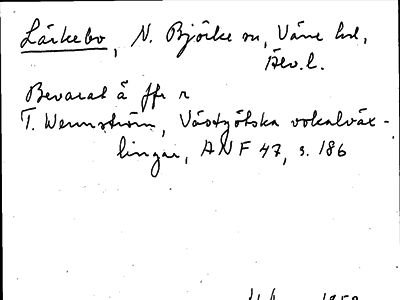 Lärkebo, N. Björke sn, Väne hd,
Älv.l.
Bevarat ä ffr r
T. Wennström, Västgötska vokalväx-
lingar, ANF 47, s. 186
1959